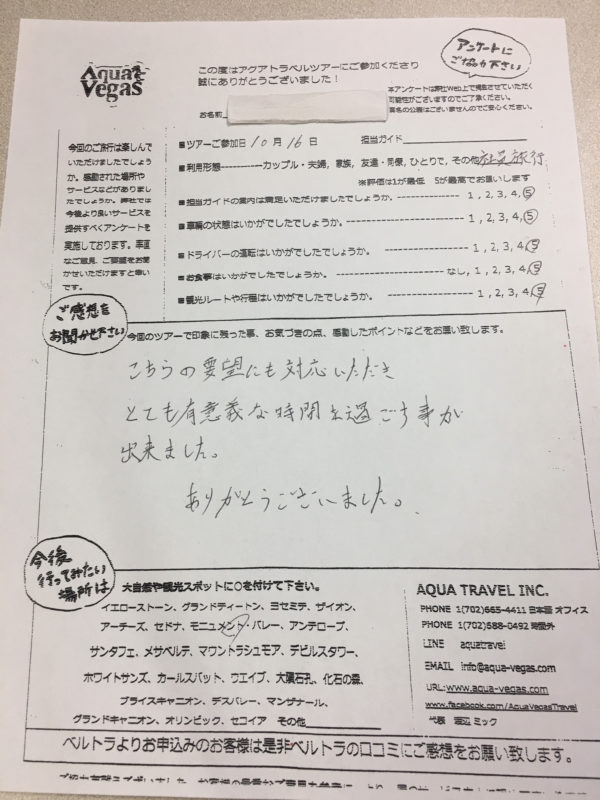 Aqua
Vegas
この度はアクアトラベルツアーにご参加くださり
誠にありがとうございました！
アンケートに
ご協力下さい
本アンケートは弊社Web上で掲載させていただく
可能性がございますのでご了承ください。
実名の公開はございませんのでご安心ください。
お名前
今回のご旅行は楽しんで
いただけましたでしょう
か。感動された場所や
サービスなどがありまし
たでしょうか。弊社では
今後より良いサービスを
提供すべくアンケートを
実施しております。率直
なご意見、ご要望をお聞
かせいただけますと幸い
です。
■ツアーご参加日 10月16日 担当ガイド
■利用形態-----------カップル・夫婦, 家族, 友達・同僚, ひとりで, その他 社員旅行
※評価は1が最低 5が最高でお願いします
■担当ガイドの案内は満足いただけましたでしょうか。 ---------------- 1, 2, 3, 4, 5
■車輌の状態はいかがでしたでしょうか。 ---------------- 1, 2, 3, 4, 5
■ドライバーの運転はいかがでしたでしょうか。 ---------------- 1, 2, 3, 4, 5
■お食事はいかがでしたでしょうか。 ---------------- なし, 1, 2, 3, 4, 5
■観光ルートや行程はいかがでしたでしょうか。 ---------------- 1, 2, 3, 4, 5
ご感想を
お聞かせ下さい
今回のツアーで印象に残った事、お気づきの点、感動したポイントなどをお願い致します。
こちらの要望にも対応いただき
とても有意義な時間を過ごす事が
出来ました。
ありがとうございました。
今後
行ってみたい
場所は
大自然や観光スポットに○を付けて下さい。
イエローストーン、グランドティートン、ヨセミテ、ザイオン、
アーチーズ、セドナ、モニュメント・バレー、アンテロープ、
サンタフェ、メサベルデ、マウントラシュモア、デビルスタワー、
ホワイトサンズ、カールスバット、ウエイブ、大隕石孔、化石の森、
ブライスキャニオン、デスバレー、マンザナール、
グランドキャニオン、オリンピック、セコイア その他
AQUA TRAVEL INC.
PHONE 1(702)665-4411 日本語 オフィス
PHONE 1(702)688-0492 時間外
LINE aquatravel
EMAIL info@aqua-vegas.com
URL:www.aqua-vegas.com
www.facebook.com/AquaVegasTravel
代表 渡辺 ミック
ベルトラよりお申込みのお客様は是非ベルトラの口コミにご感想をお願い致します。